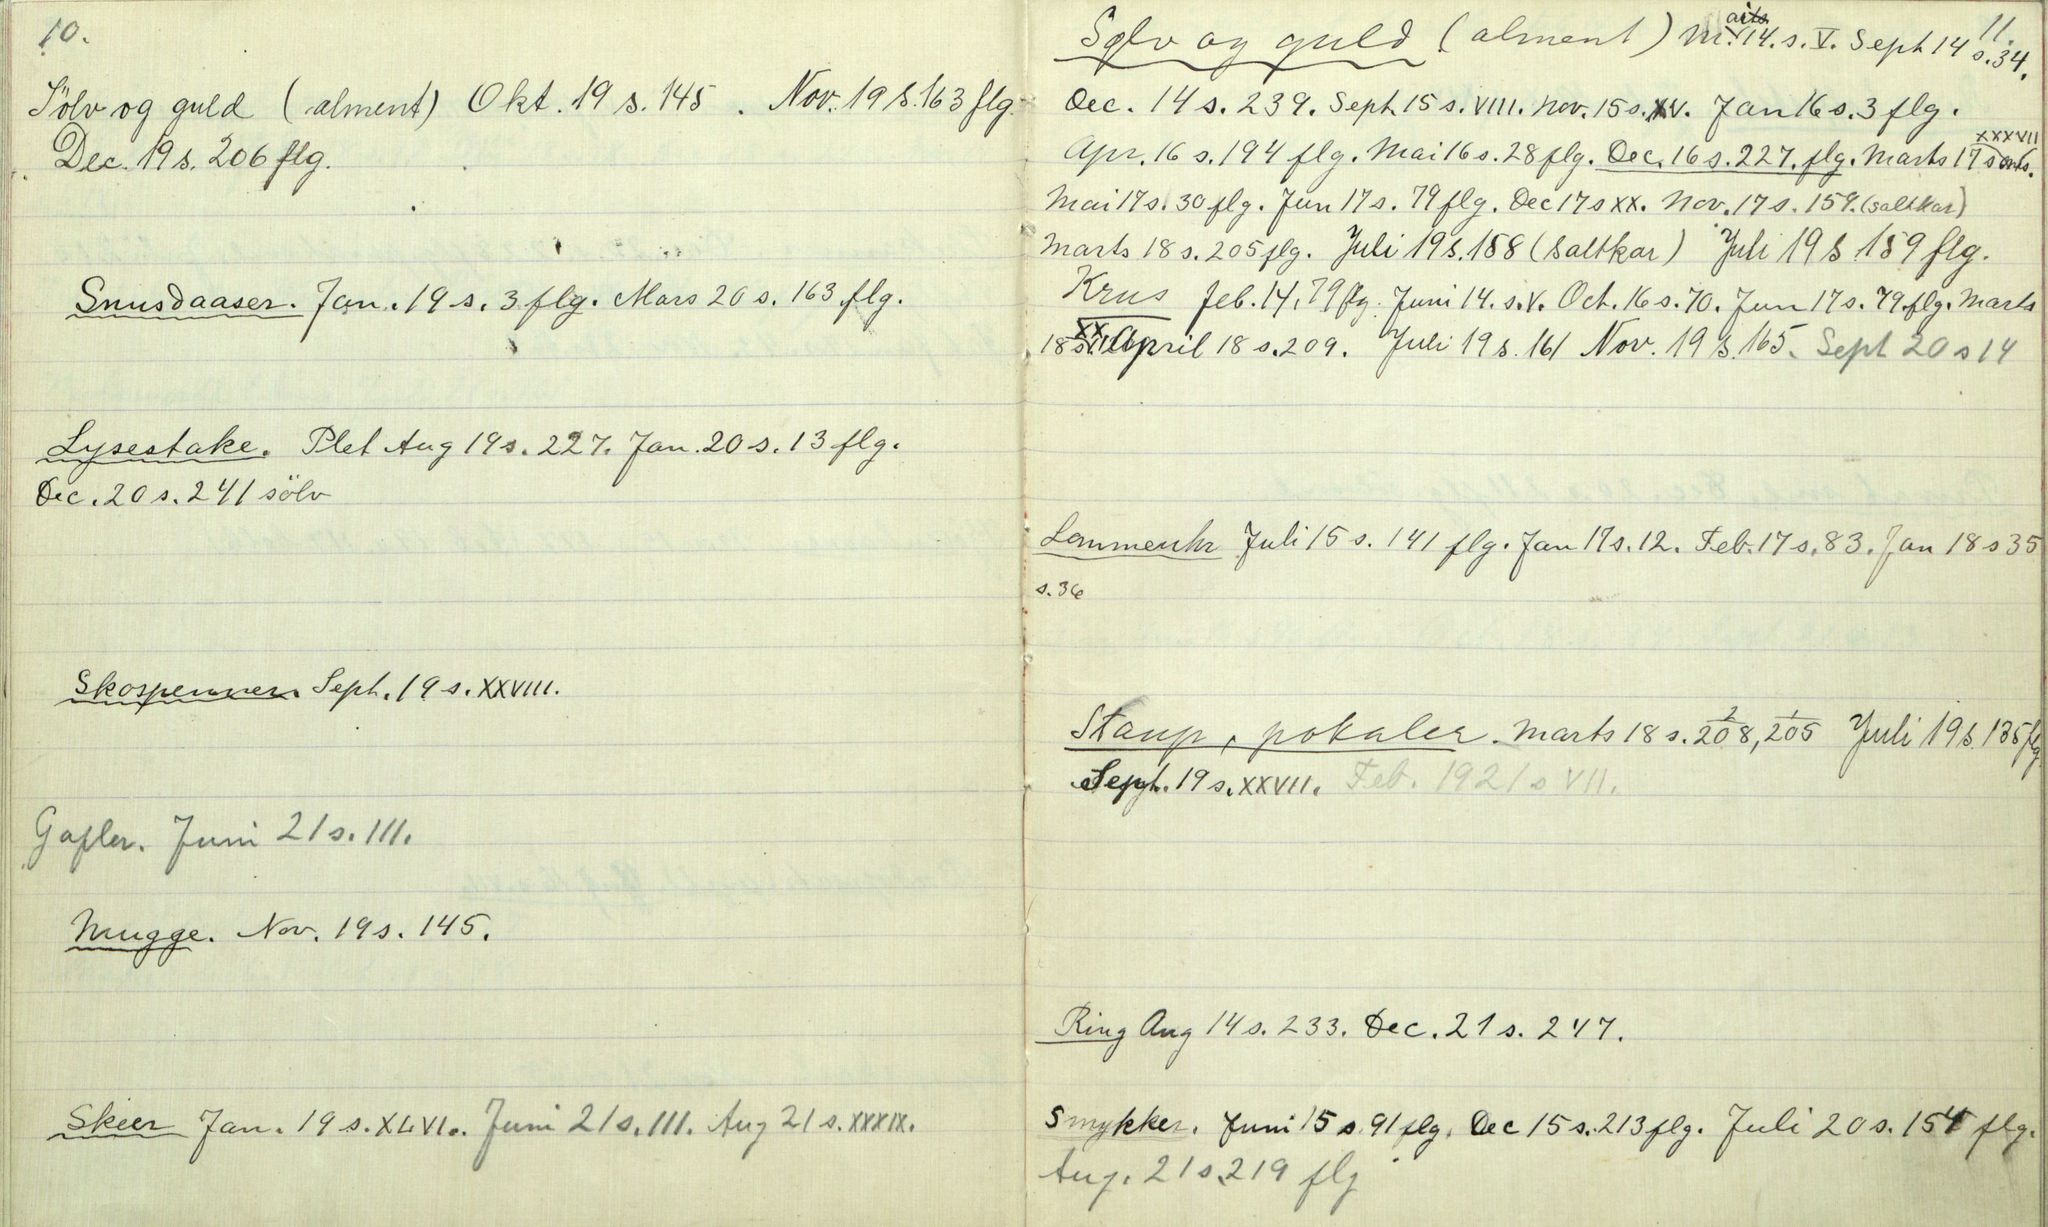 10.
Sölv og guld (alment) Okt. 19 s. 145. Nov. 19 s. 163 flg.
Dec. 19 s. 206 flg.
Snusdaaser. Jan. 19 s. 3 flg. Mars 20 s. 163 flg.
Lysestake. Plet Aug 19 s. 227. Jan. 20 s. 13 flg.
Dec. 20 s. 241 sölv
Skospenner. Sept. 19 s. XXVIII.
Gafler. Juni 21 s. III.
Mugge. Nov. 19 s. 145.
Skeer Jan. 19 s. XLVI. Juni 21 s. III. Aug 21 s. XXXIX.
11.
Sølv og guld (alment) 14. s. V. Sept 14 s. 34.
Dec. 14 s. 239. Sept. 15 s. VIII. Nov. 15 s. XV. Jan 16 s. 3 flg.
Apr. 16 s. 194 flg. Mai 16 s. 28 flg. Dec. 16 s. 227. flg. Marts 17 s XXXVII
Mai 17 s. 30 flg. Jun 17 s. 79 flg. Dec 17 s XX. Nov. 17 s. 159. (saltkar)
Marts 18 s. 205 flg. Juli 19 s. 158 (saltkar) Juli 19 s 159 flg.
Krus Feb. 14, 79 flg. Juni 14. s. V. Oct. 16 s. 70. Jun 17 s. 79. flg. Marts
18 s. April 18 s. 209. Juli 19 s. 161 Nov. 19 s. 165. Sept 20 s 14
Lommeuhr Juli 15 s. 141 flg. Jan 17 s. 12. Feb. 17 s. 83. Jan 18 s 35
s. 36
Staup, pokaler. Marts 18 s. 208, 205 Juli 19 s. 135 flg
Sept. 19 s. XXVII. Feb. 1921 s VII.
Ring Aug 14 s. 233. Dec. 21 s. 247.
Smykker. Juni 15 s. 91 flg. Dec 15 s. 213 flg. Juli 20 s. 154 flg.
Aug. 21 s. 219 flg